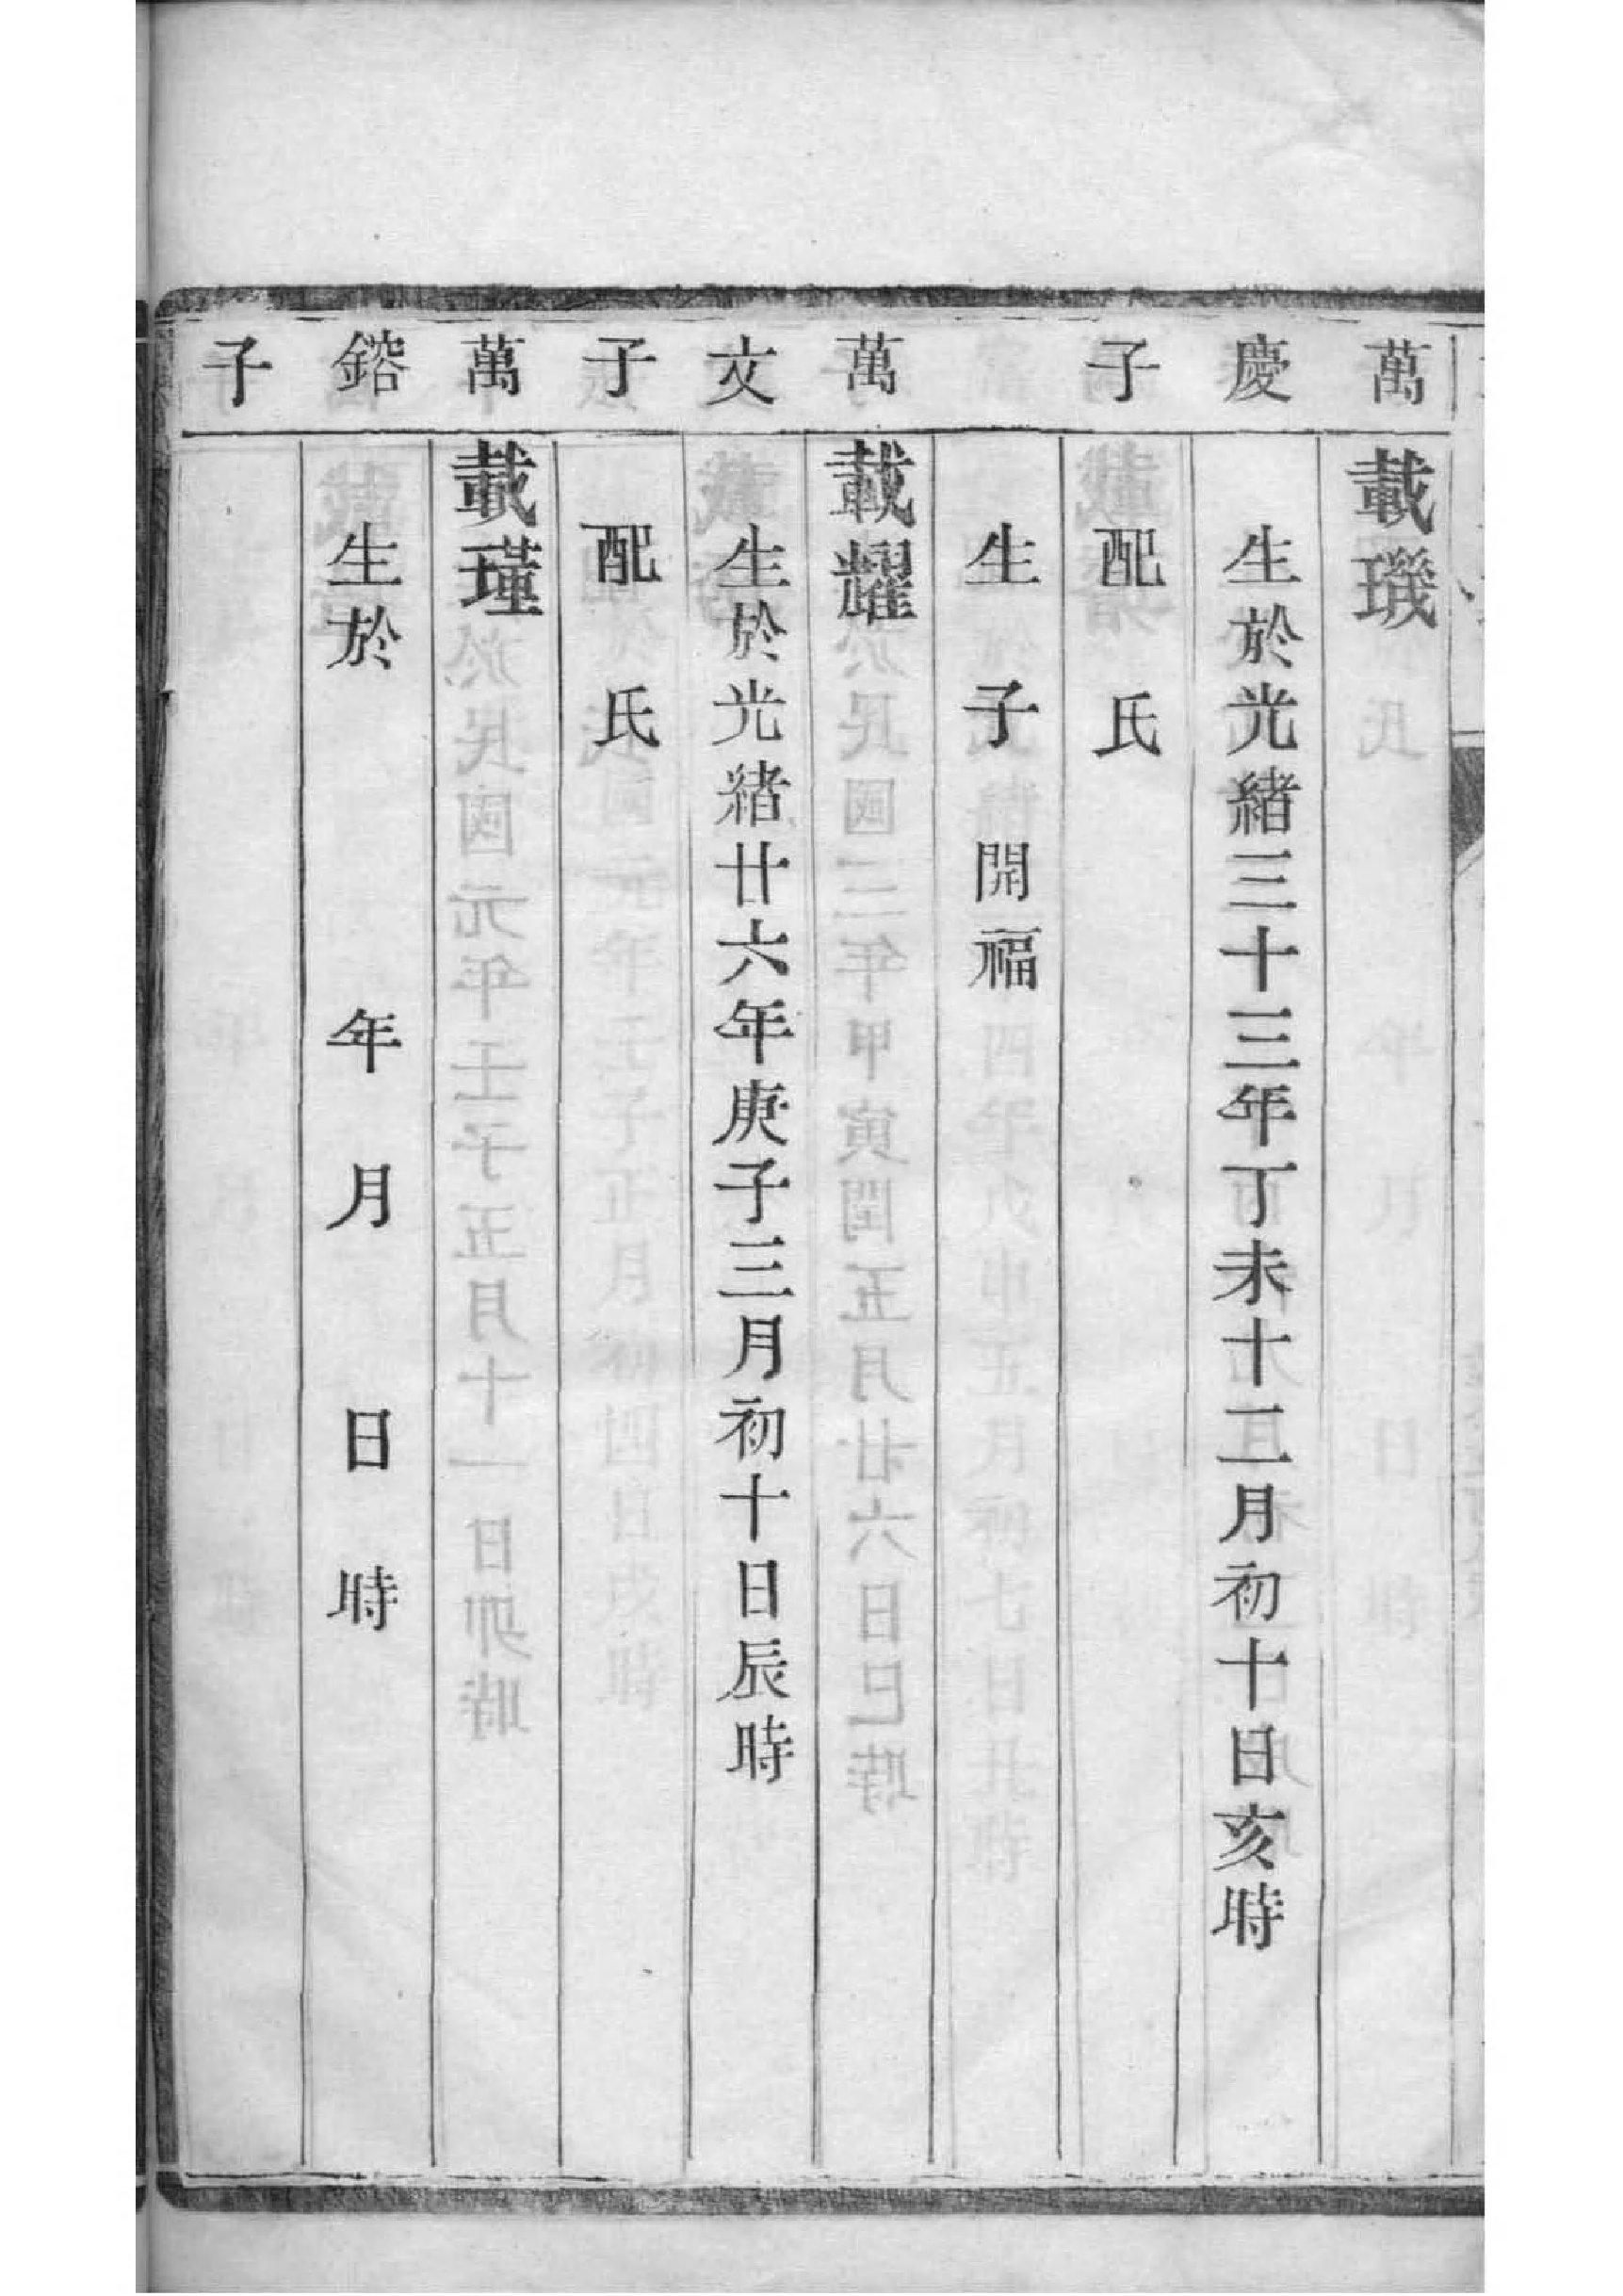 萬　載璣
慶　生於光緒三十三年丁未十二月初十日亥時
子　配　氏
生　子　開福
萬　載耀
文　生於光緒廿六年庚子三月初十日辰時
子　配　氏
萬　載瑾
鎔　生於　年　月　日　時
子